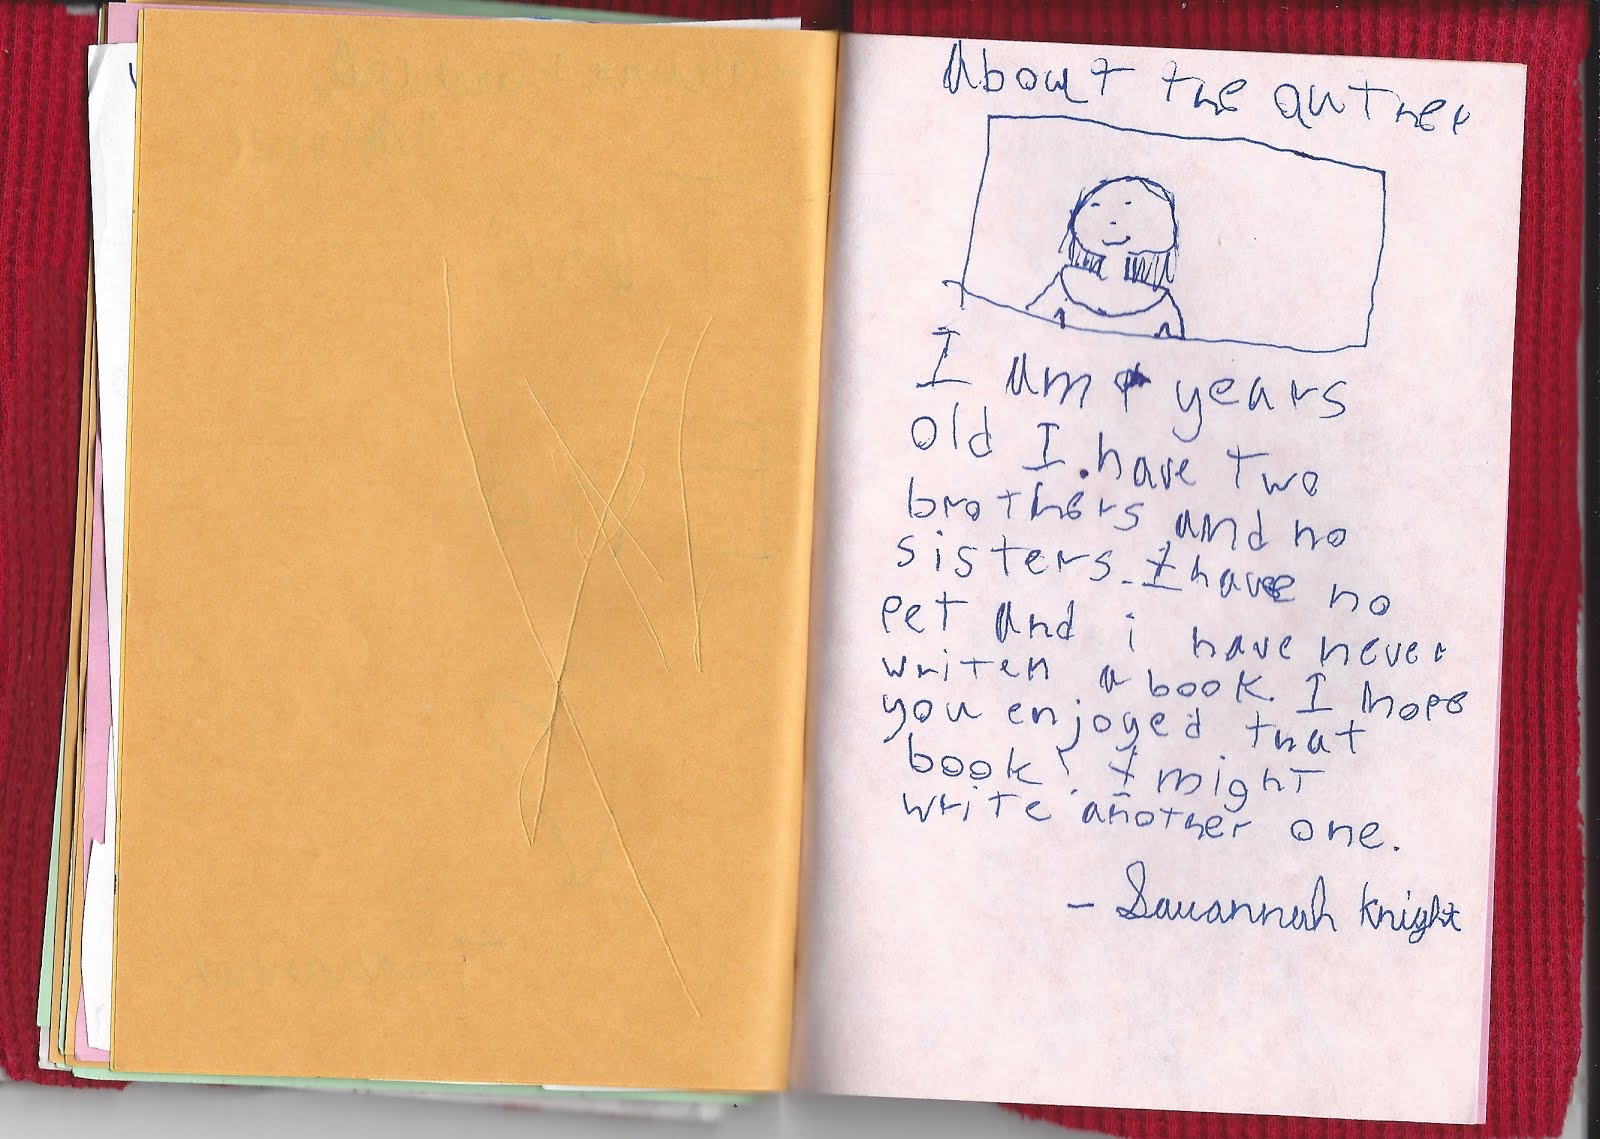 About the auther
I am years
old I have two
brothers and no
sisters. I have no
pet and i have never
writen a book. I hope
you enjoyed that
book! I might
write another one.
- Savannah Knight